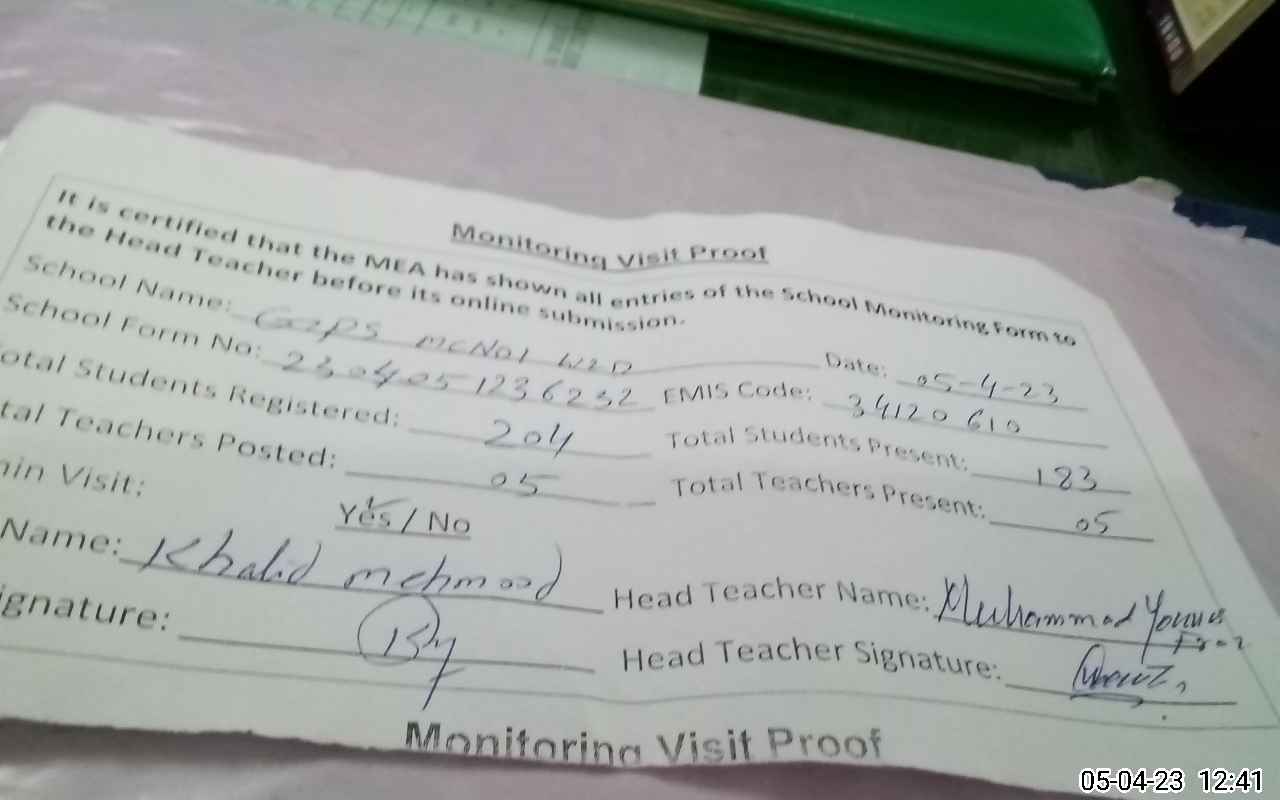 Monitoring Visit Proof
It is certified that the MEA has shown all entries of the School Monitoring Form to
the Head Teacher before its online submission.
School Name: Date: 05-4-23
School Form No: 2304051236232 EMIS Code: 34120610
otal Students Registered: 204 Total Students Present: 183
tal Teachers Posted: 05 Total Teachers Present: 05
in Visit: Yes / No
Name: Khalid mehmood Head Teacher Name: Muhammad Younus
ignature: Head Teacher Signature:
Monitoring Visit Proof
05-04-23 12:41